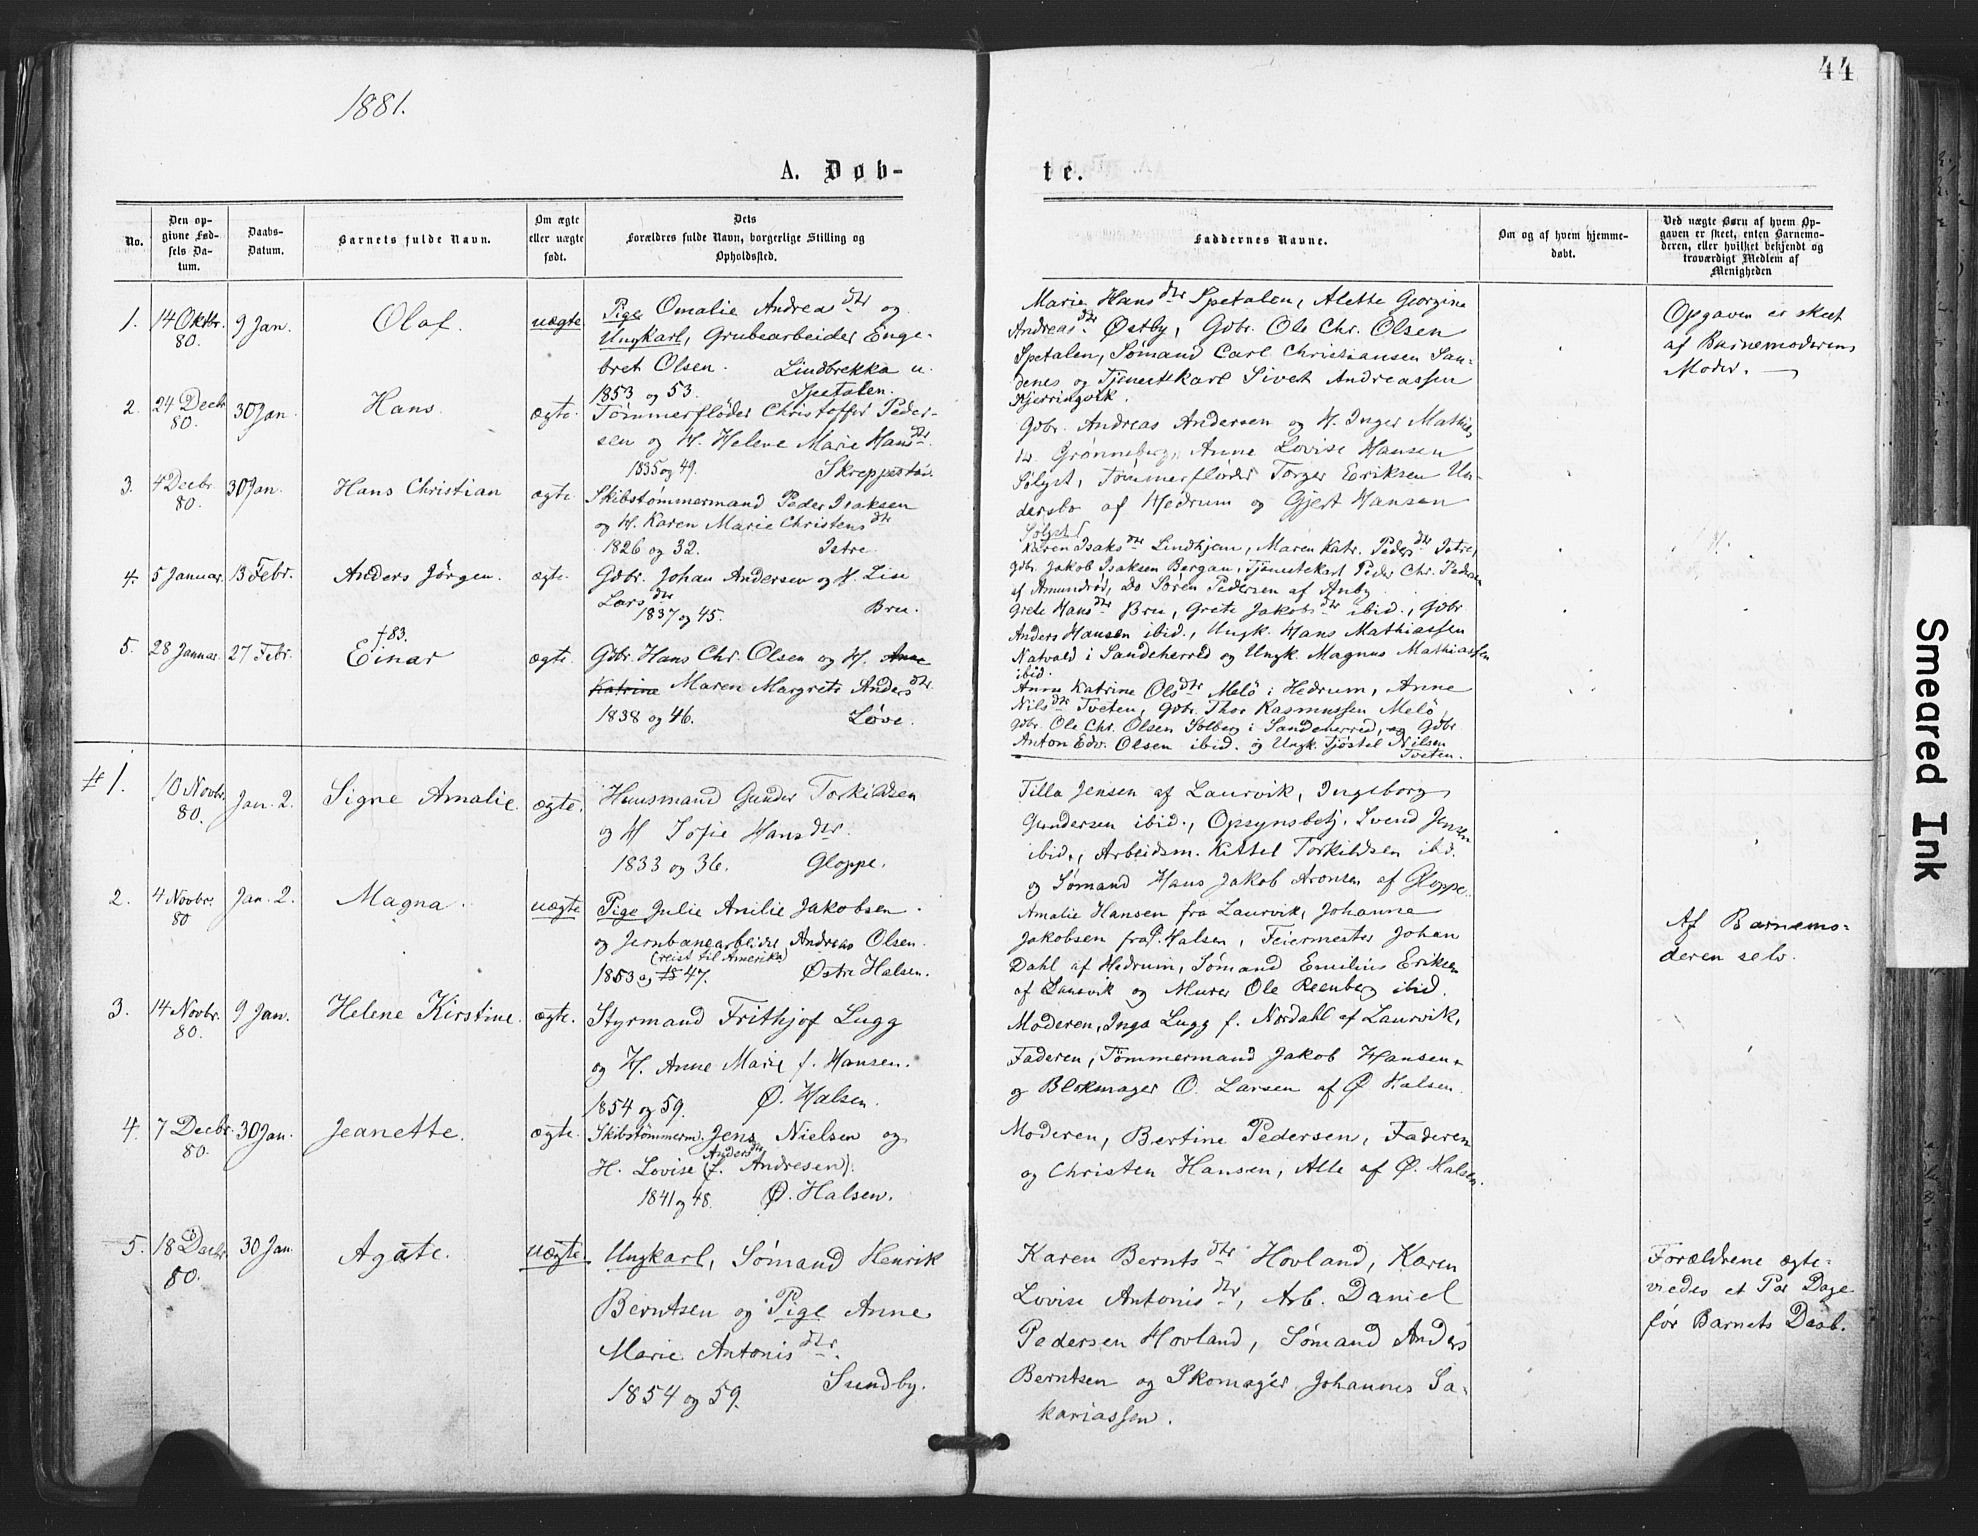 44
1881.
A. Døb-
te.
No.
Den op-
givne Fød-
sels Da-
tum.
Daabs-
Datum.
Barnets fulde Navn.
Om ægte
eller uægte
født.
Dets
Forældres fulde Navn, borgerlige Stilling og
Opholdssted.
Faddernes Navne.
Om og af hvem hjemme-
døbt.
Ved uægte Børn af hvem Op-
gaven er skeet, enten Barnemo-
deren, eller hvilket bekjendt og
troværdigt Medlem af
Menigheden
1.
14 Oktbr.
80.
9 Jan.
Olaf.
uægte
Pige Omalie Andreadtr og
Ungkarl, Grubearbeider Enge-
bret Olsen. Lindbrekka u.
1853 og 53. Spetalen.
Marie Hansdtr Spetalen, Alette Georgine
Andreasdtr Østby, Gdbr. Ole Chr. Olsen
Spetalen, Sømand Carl Christiansen San-
denes og Tjenestekarl Sivet Andreassen
Kjerringvik.
Opgaven er skeet
af Barnemoderens
Moder. —
2.
24 Decbr
80.
30 Jan.
Hans.
ægte.
Tømmerfløder Christoffer Peder-
sen og H. Helene Marie Hansdtr.
1835 og 49. Skreppestad.
Gdbr. Andreas Andersen og H. Inger Mathis
dr. Grønneberg, Anne Lovise Hansen
Sølyst, Tømmerfløder Torger Eriksen Un-
dersbo af Hedrum og Gjert Hansen
Sølyst.
3.
4 Decbr
80.
30 Jan.
Hans Christian
ægte.
Skibstømmermand Peder Isaksen
og H. Karen Marie Christensdtr
1826 og 32. Istre
Karen Isaksdtr Lindhjem, Maren Katr. Pedersdtr Istre,
Gdbr. Jakob Isaksen Bergan, Tjenestekarl Peder Chr. Pedersen
af Amundrød, Do Søren Pedersen af Auby
4.
5 Januar.
13 Febr.
Anders Jörgen.
ægte.
Gdbr. Johan Andersen og H. Lise
Larsdtr
1837 og 45. Bru.
Grete Hansdtr Bru, Grete Jakobsdtr ibid., Gdbr.
Anders Hansen ibid., Ungk. Hans Mathiassen
Natvald i Sandeherred og Ungk. Magnus Mathiassen
ibid.
5.
28 Januar.
27 Febr.
†83.
Einar
ægte.
Gdbr. Hans Chr. Olsen og H. Anne
Katrine Maren Margrete Andersdtr.
1838 og 46. Løve.
Anne Katrine Olsdtr Melö i Hedrum, Anne
Nilsdtr Tveten, Gdbr. Thor Rasmussen Melö,
Gdbr. Ole Chr. Olsen Solberg i Sandeherred, og Gdbr
Anton Edv. Olsen ibid. og Ungk. Tjøstel Nilsen
Tveten.
# 1.
10 Novbr.
80.
Jan. 2.
Signe Amalie.
ægte.
Huusmand Gunder Torkildsen
og H Sofie Hansdtr.
1833 og 36. Gloppe.
Tilla Jensen af Laurvik, Ingeborg
Gundersen ibid., Opsynsbetj. Svend Jensen
ibid., Arbeidsm. Kittel Torkildsen ibid.
og Sømand Hans Jakob Aronsen af Gloppe.
2.
4 Novbr.
80
Jan. 2.
Magna.
uægte
Pige Julie Anilie Jakobsen.
og Jernbanearbeider Andreas Olsen.
(reist til Amerika)
1853 og 18 47. Østre Halsen.
Amalie Hansen fra Laurvik, Johanne
Jakobsen fra Ø. Halsen, Feiermester Johan
Dahl af Hedrum, Sømand Emilius Eriksen
af Laurvik og Murer Ole Reenberg ibid.
Af Barnemo-
deren selv.
3.
14 Novbr.
80.
9 Jan.
Helene Kirstine.
ægte.
Styrmand Frithjof Lugg
og H. Anne Marie f. Hansen.
1854 og 59. Ø. Halsen.
Moderen, Inga Lugg f. Nordahl af Laurvik,
Faderen, Tømmermand Jakob Hansen
og Blokmager O. Larsen af Ø Halsen.
4.
7 Decbr.
80.
30 Jan.
Jeanette.
ægte.
Skibstømmerm. Jens Nielsen og
H. Lovise Andersdtr (f. Andresen).
1841 og 48. Ø. Halsen.
Moderen, Bertine Pedersen, Faderen
og Christen Hansen, Alle af Ø. Halsen.
5.
18 Decbr
80.
30 Jan.
Agate.
uægte.
Ungkarl, Sømand Henrik
Berntsen og Pige Anne
Marie Antonisdtr.
1854 og 59. Sundby.
Karen Berntsdtr Hovland, Karen
Lovise Antonisdtr, Arb. Daniel
Pedersen Hovland, Sømand Anders
Berntsen og Skomager Johannes Sa-
kariassen.
Forældrene ægte-
viedes et Par Dage
før Barnets Daab.
Smeared Ink